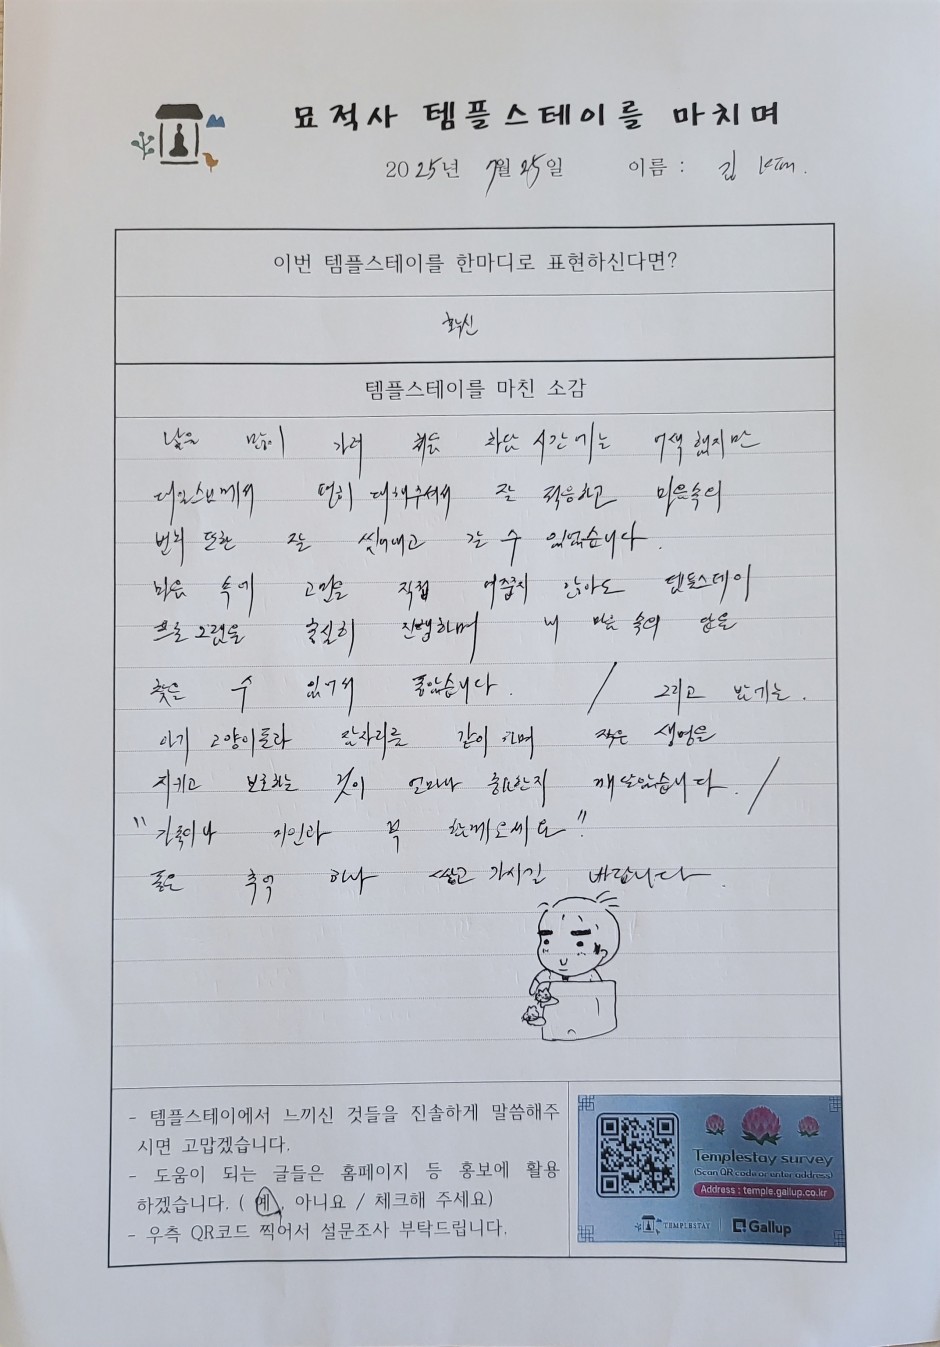 묘적사 템플스테이를 마치며
2025년 7월 25일 이름 : 김
이번 템플스테이를 한마디로 표현하신다면?
확신
템플스테이를 마친 소감
낯을 많이 가려 처음 차담 시간에는 어색 했지만
대일스님께서 편히 대해주셔서 잘 적응하고 마음속의
번뇌 또한 잘 씻어내고 갈 수 있었습니다.
마음 속에 고민을 직접 여쭙지 않아도 템플스테이
프로그램을 충실히 진행하며 내 마음 속의 답을
찾을 수 있어서 좋았습니다. / 그리고 받기는.
아기 고양이들과 잠자리를 같이 하며 작은 생명을
지키고 보호하는 것이 얼마나 중요한지 깨달았습니다. /
"가족이나 지인과 꼭 함께오세요".
좋은 추억 하나 쌓고 가시길 바랍니다.
- 템플스테이에서 느끼신 것들을 진솔하게 말씀해주
시면 고맙겠습니다.
- 도움이 되는 글들은 홈페이지 등 홍보에 활용
하겠습니다. ( 예, 아니요 / 체크해 주세요)
- 우측 QR코드 찍어서 설문조사 부탁드립니다.
Templestay survey
(Scan QR code or enter address)
Address : temple.gallup.co.kr
TEMPLESTAY Gallup